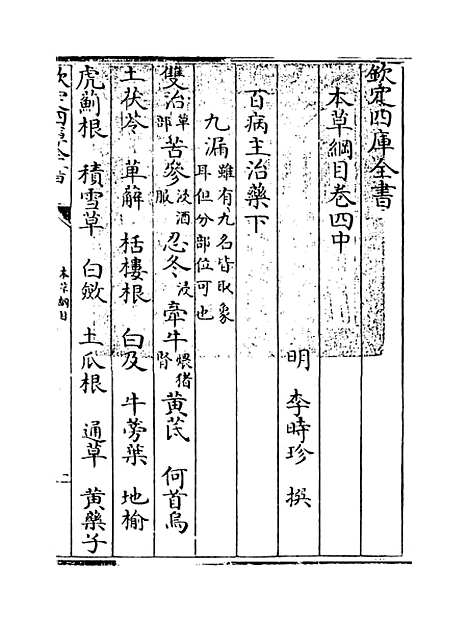 欽定四庫全書
本草綱目卷四中
明 李時珍 撰
百病主治藥下
九漏 雖有九名皆取象耳但分部位可也
雙治 草部 苦參 浸酒服 忍冬 浸 牽牛 煨猪腎 黄芪 何首烏
土茯苓 萆解 栝樓根 白及 牛蒡葉 地榆
虎薊根 積雪草 白斂 土瓜根 通草 黄藥子
欽定四庫全書
本草綱目